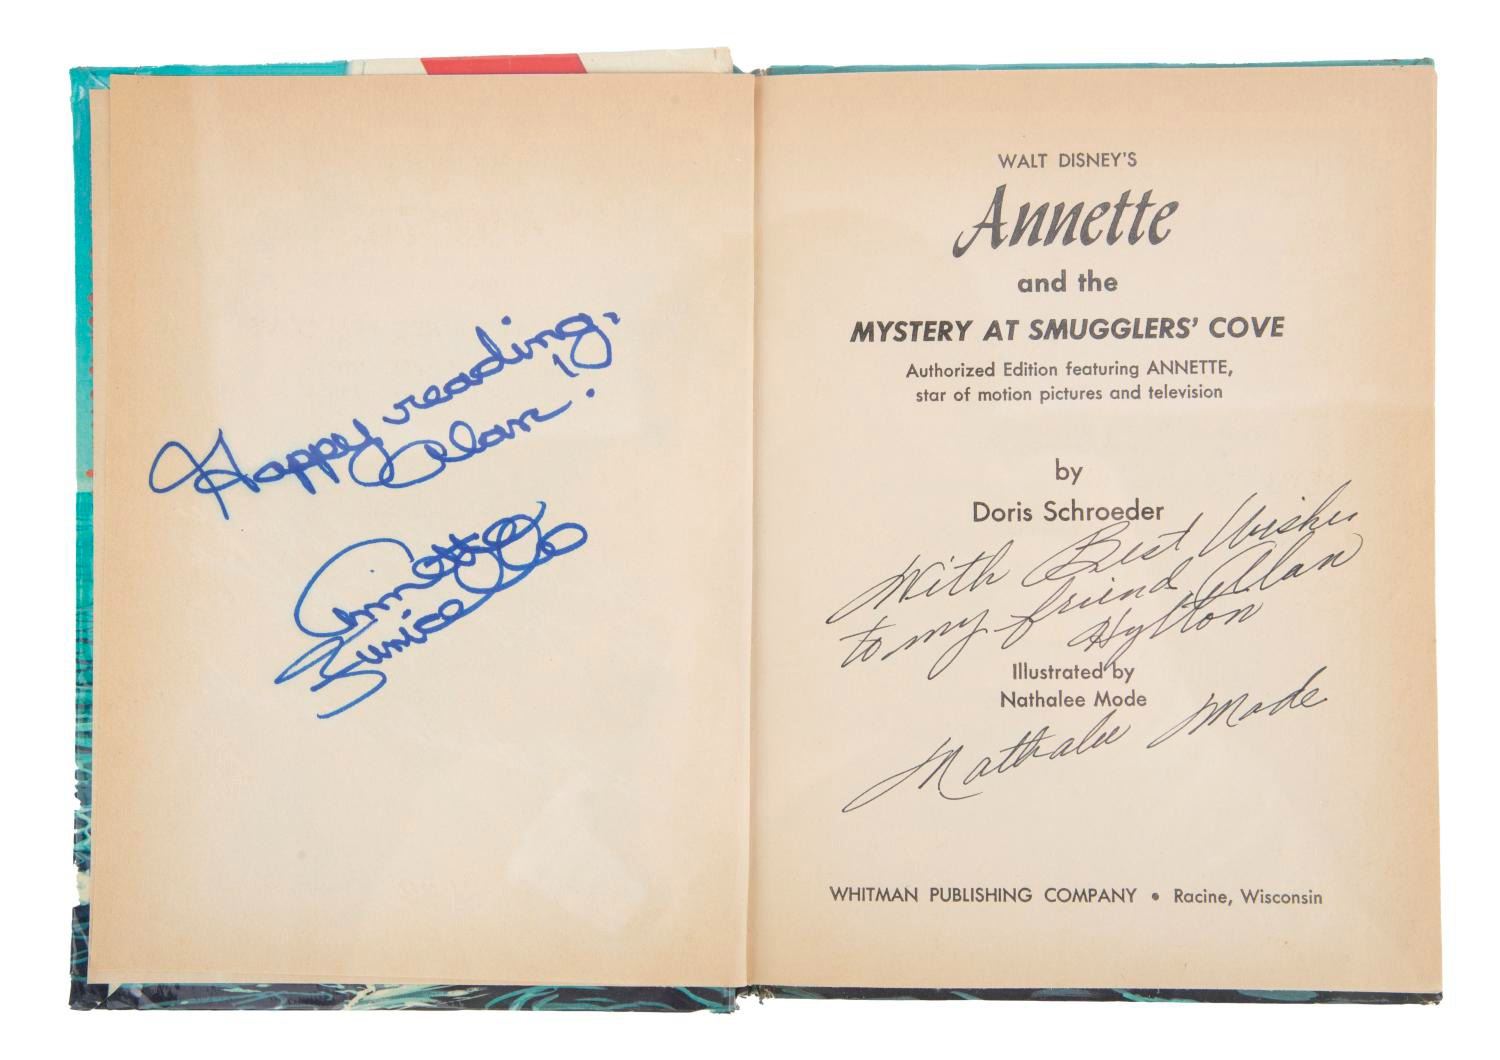 Happy reading,
Alan!
Annette
Funicello
WALT DISNEY'S
Annette
and the
MYSTERY AT SMUGGLERS' COVE
Authorized Edition featuring ANNETTE,
star of motion pictures and television
by
Doris Schroeder
With Best Wishes
to my friend, Alan
Hylton
Illustrated by
Nathalee Mode
Nathalee Mode
WHITMAN PUBLISHING COMPANY • Racine, Wisconsin